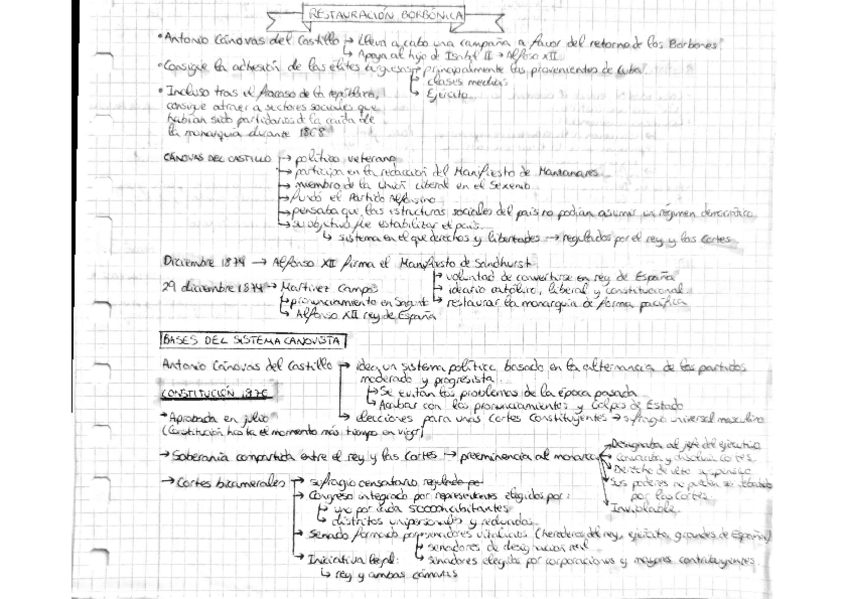 RESTAURACIÓN BORBÓNICA
• Antonio Cánovas del Castillo → Lleva a cabo una campaña a favor del retorno de los Borbones
↳ Apoya al hijo de Isabel II → Alfonso XII
• Consigue la adhesión de las élites → principalmente las provenientes de Cuba
clases medias
Ejército
• Incluso tras el fracaso de la república,
consigue atraer a sectores sociales que
habían sido partidarios de la caída de
la monarquía durante 1868
CÁNOVAS DEL CASTILLO → político veterano
→ participa en la redacción del Manifiesto de Manzanares
→ miembro de la Unión Liberal en el Sexenio
→ fundó el Partido Alfonsino
→ pensaba que las estructuras sociales del país no podían asumir un régimen democrático
→ su objetivo fue estabilizar el país
↳ sistema en el que derechos y libertades → regulados por el rey y las Cortes
Diciembre 1874 → Alfonso XII firma el Manifiesto de Sandhurst
→ voluntad de convertirse en rey de España
→ ideario católico, liberal y constitucional
→ restaurar la monarquía de forma pacífica
29 diciembre 1874 → Martínez Campos
↳ pronunciamiento en Sagunt
↳ Alfonso XII rey de España
BASES DEL SISTEMA CANOVISTA
Antonio Cánovas del Castillo → idea un sistema político basado en la alternancia de los partidos
moderado y progresista
↳ Se evitan los problemas de la época pasada
↳ Acabar con los pronunciamientos y Golpes de Estado
→ elecciones para unas cortes constituyentes → sufragio universal masculino
CONSTITUCIÓN 1876
→ Aprobada en julio
(Constitución hasta el momento más tiempo en vigor)
→ Soberanía compartida entre el rey y las Cortes → preeminencia al monarca
→ Designaba al jefe del ejecutivo
→ Convocaba y disolvía cortes
→ Derecho de veto
→ Sus poderes no podían ser
por las Cortes
→ Inviolable
→ Cortes bicamerales → sufragio censatario regulado por
→ Congreso integrado por representantes elegidos por:
↳ uno por cada 50000 habitantes
↳ distritos unipersonales y
→ Senado formado por senadores vitalicios (herederos del rey, ejército, grandes de España)
↳ senadores de designación real
↳ senadores elegidos por corporaciones y mayores contribuyentes
→ Iniciativa legal:
↳ rey y ambas cámaras